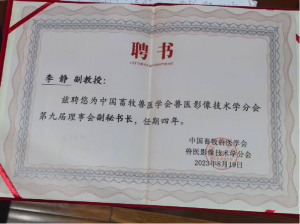 聘书
李 静 副教授：
兹聘您为中国畜牧兽医学会兽医影像技术学分会
第九届理事会副秘书长，任期四年。
中国畜牧兽医学会
兽医影像技术学分会
2023年8月19日